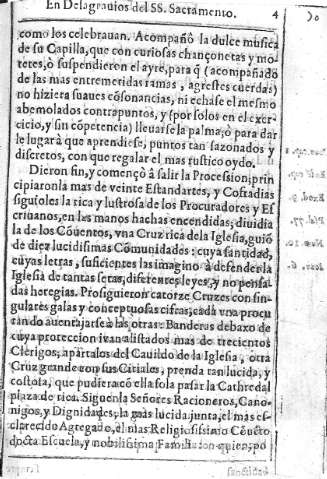 En Desagravios del SS. Sacramento. 4
como los celebrauan. Acompañò la dulce musica
de su Capilla, que con curiosas chançonetas y mo-
tetes, ò suspendieron el ayre, para q̃ (acompañado
de las mas entremetidas ramas, agrestes cuerdas)
no hiziera suaues cõsonancias, ni echase el mesmo
abemolados contrapuntos, y (por solos en el exer-
cicio, y sin cõpetencia) lleuarse la palma, ò para dar
le lugar à que aprendiese, puntos tan sazonados y
discretos, con que regalar el mas rustico oydo.
Dieron fin, y començò à salir la Procession; prin
cipiaronla mas de veinte Estandartes, y Cofradias
siguioles la rica y lustrosa de los Procuradores y Es
criuanos, en las manos hachas encendidas; diuidia
la de los Cõuentos, vna Cruz rica de la Iglesia, guiò
de diez lucidisimas Comunidades: cuya santidad,
cuyas letras, suficientes las imagino à defender la
Iglesia de tantas setas, diferentes leyes, y no pensa-
das heregias. Prosiguieron catorze Cruzes con sin-
gulares galas y conceptuosas cifras, cada vna procu
rando auentajarse à las otras: Banderas debaxo de
cuya proteccion ivan alistados mas de trecientos
Clerigos, apartalos del Cauildo de la Iglesia, otra
Cruz grande con sus Ciriales, prenda tan lucida, y
costosa, que pudiera cõ ella sola pasar la Cathredal
plaza de rica. Siguenla Señores Racioneros, Cano-
nigos, y Dignidades, la mas lucida junta, el mas es-
clarecido Agregado, el mas Religiosissimo Cõuẽto
docta Escuela, y nobilisima Familia con quien, po